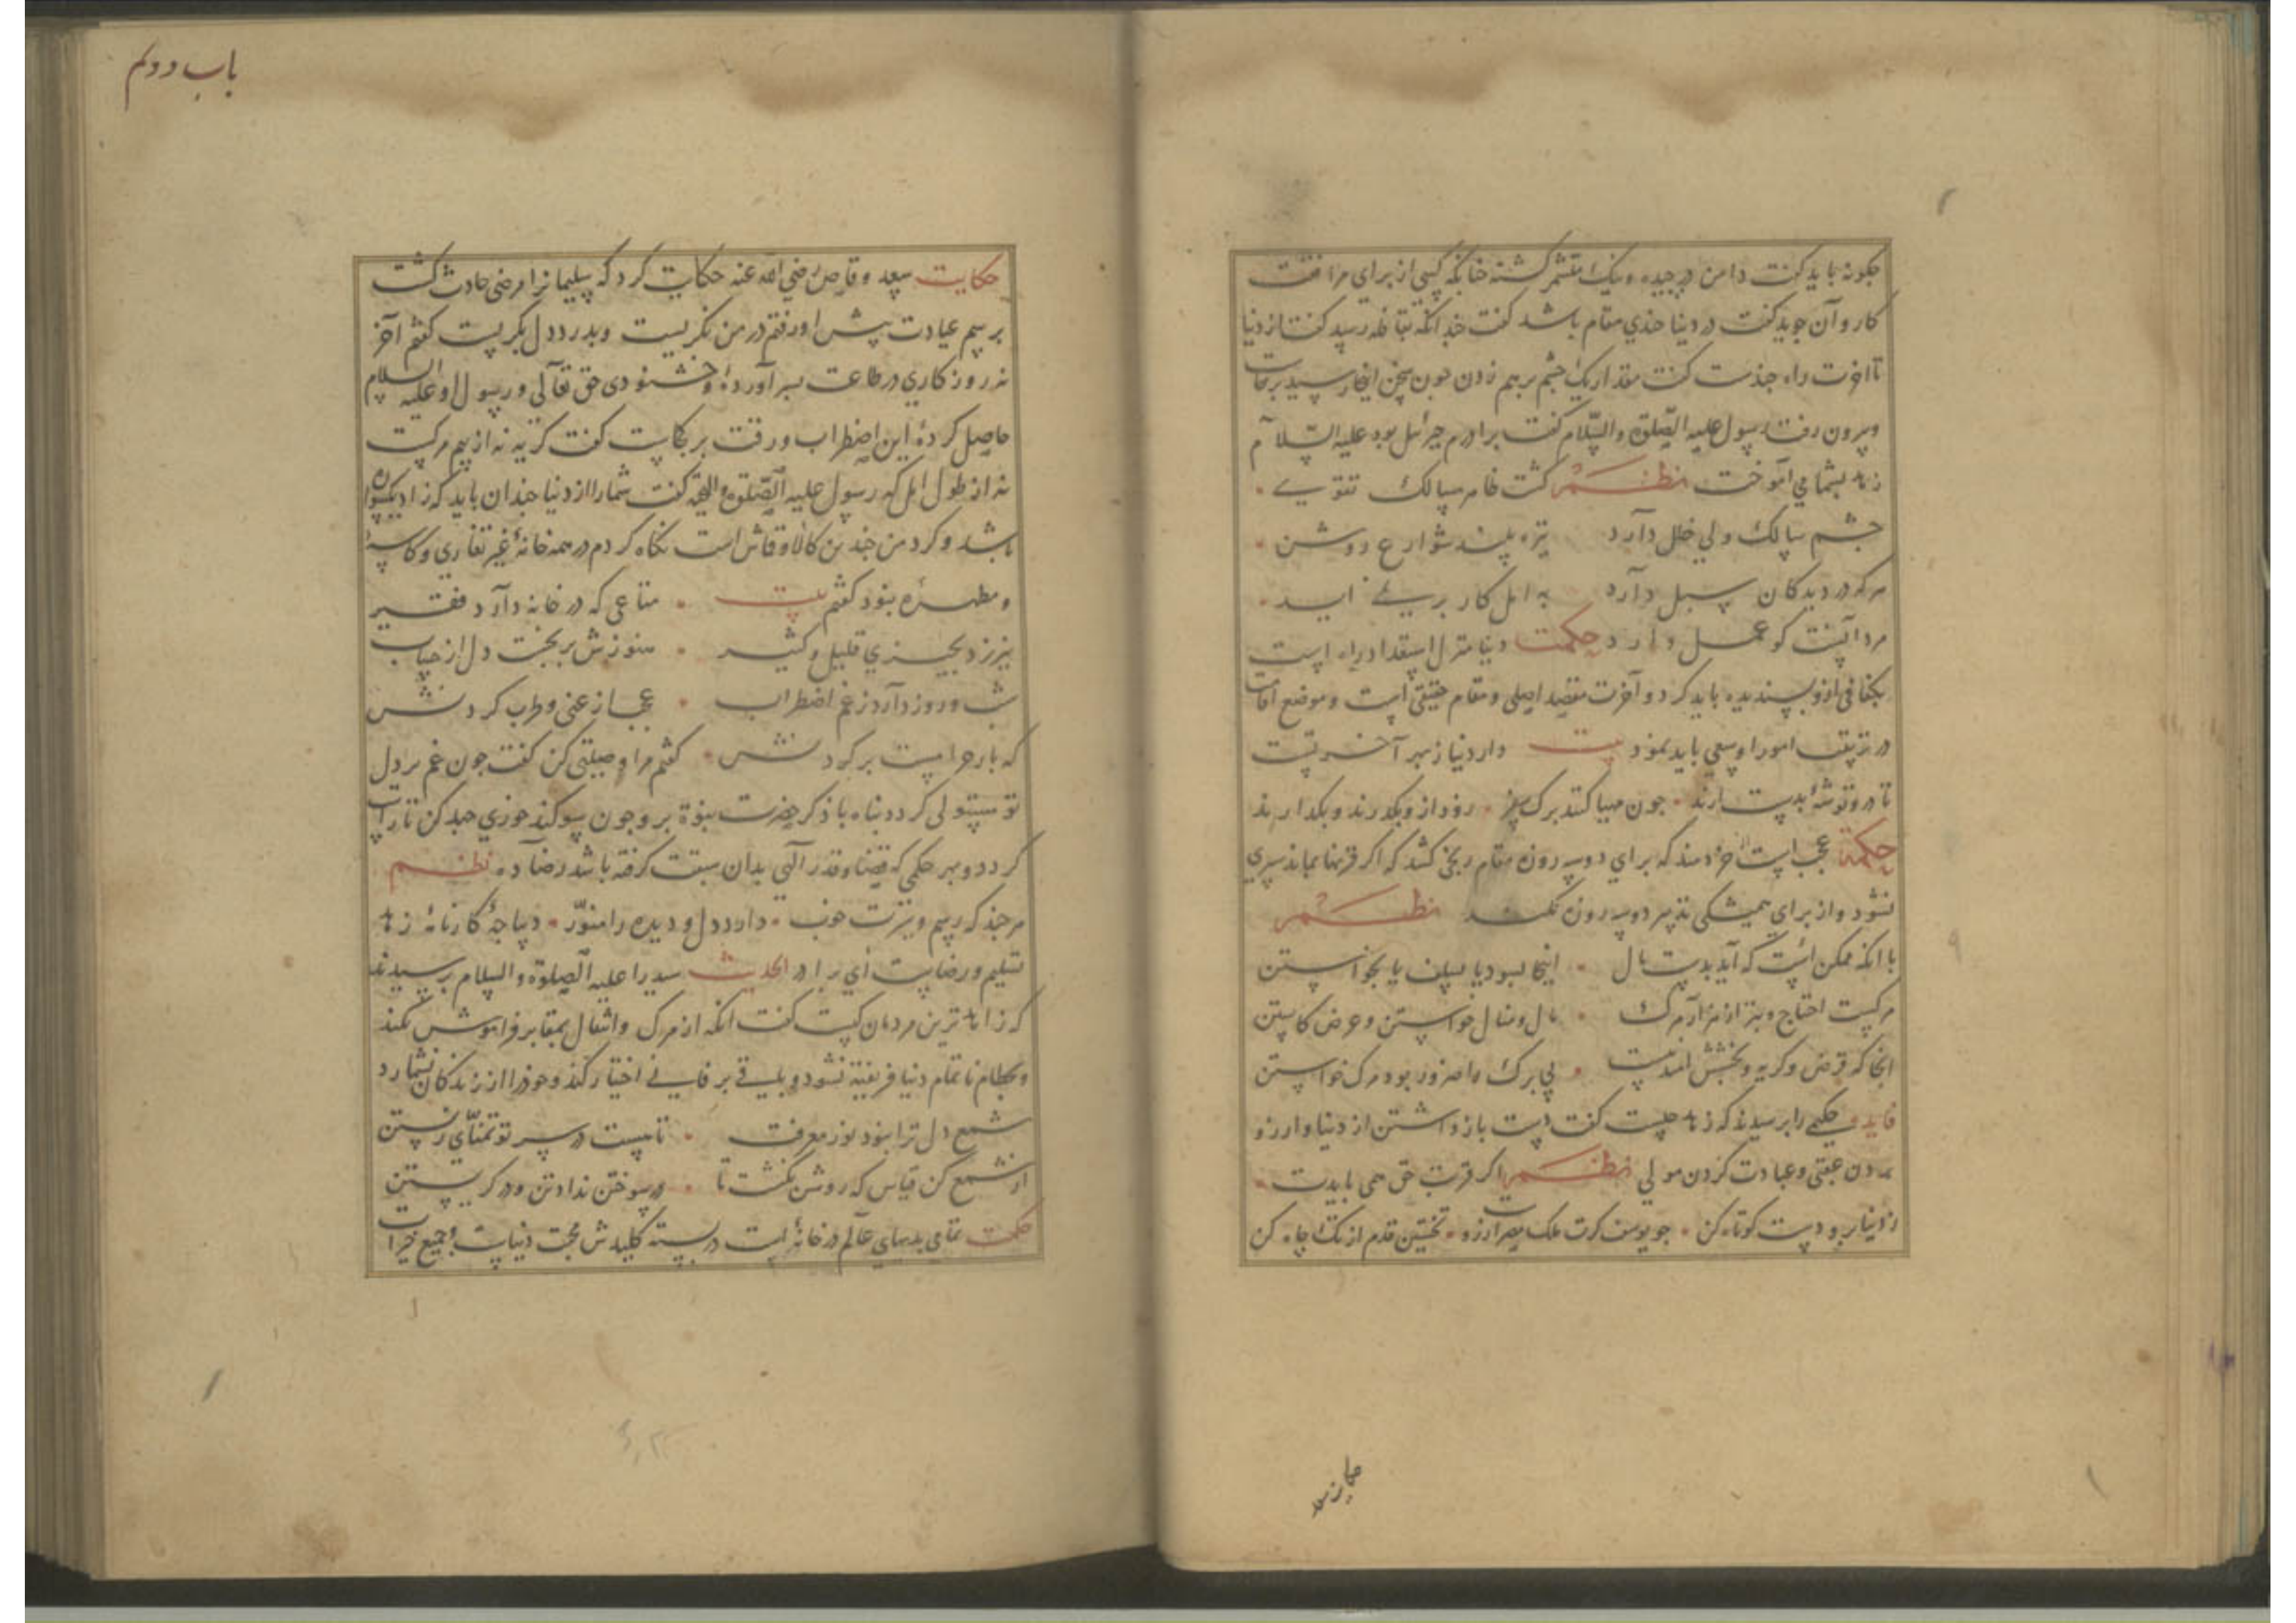 چکونه باید کفت دامن درچیده و نیک متشمر کشته چنانکه کسی از برای مرافقت
کاروان جوید کفت در دنیا چندی مقام باشد کفت چندانکه بقافله رسید کفت از دنیا
تا اخرت راه چندست کفت مقدار یک چشم برهم زدن چون سخن اینجا رسید برخاست
وبیرون رفت رسول علیه الصلوة والسلام کفت برادرم جبرئیل بود علیه السلام
زهد بشما می اموخت نظم کشت سالک تقوی
چشم سالک ولی خلل دارد تیره بیند شوارع روشن
هرکه در دیدکان سبل دارد به امل کار برنمی اید
مرد آنست کو عمل دارد حکمت دنیا منزل استعداد راه است
بکفافی ازو بسنده باید کرد و آخرت مقصد اصلی و مقام حقیقی است و موضع اقامت
در ترتیب امور او سعی باید نمود بیت دار دنیا ز بهر آخرتست
تا درو توشۀ بدست ارند چون مهیا کنند برک سفر رود از و بکذرند و بکذارند
حکمة عجب است از خردمند که برای دو سه روزه مقام رنجی کشد که اکر قرنها بماند سپری
نشود و از برای همیشکی تدبیر دو سه روزه نکند نظم
با انکه ممکن است که آید بدست مال اینجا بسود یا بسلف یا بخواستن
مرکست احتیاج و بتر از هزار مرک مال و منال خواستن و عرض کاستن
انجا که قرض و کریه و بخشش امید نیست بی برک را ضرور بود مرک خواستن
فایده حکیمی را پرسیدند که زهد چیست کفت دست بازداشتن از دنیا و ارزو
بردن عقبی و عبادت کردن مولی نظم اکر قربت حق همی بایدت
ز دنیا برو دست کوتاه کن چو یوسف کرت ملک مصر ارزوست نخستین قدم از تک چاه کن
حکایت سعد وقاص رضی الله عنه حکایت کرد که سلیمانرا مرضی حادث کشت
برسم عیادت پیش او رفتم در من نکریست وبدرد دل بکریست کفتم آخر
نه روزکاری در طاعت بسر آوردۀ وخشنودی حق تعالی و رسول او علیه السلام
حاصل کردۀ این اضطراب ورقت بر کجاست کفت کریه نه از بیم مرکست
نه از طول امل که رسول علیه الصلوة والتحیة کفت شمارا از دنیا چندان باید که زاد یکسواره
باشد وکرد من چندین کالا وقماش است نکاه کردم در همه خانۀ غیر تغاری وکاسۀ
ومطهرۀ نبود کفتم بیت متاعی که در خانه دارد فقیر
نیرزد بچیزی قلیل وکثیر هنوزش برنجست دل از حساب
شب وروز دارد ز غم اضطراب عجب از غنی وطرب کردنش
که بار حرامست بر کردنش کفتم مرا وصیتی کن کفت چون غم بر دل
تو مستولی کردد پناه با ذکر حضرت نبوة بر وچون سوکند خوری جهد کن تا راست
کردد و بهر حکمی که قضا وقدر آلهی بدان سبقت کرفته باشد رضا ده نظم
هرچند که رسم وسیرت خوب دارد دل و دیده را منوّر دیباجۀ کارنامۀ زهد
تسلیم و رضاست ای برادر الحدیث سید را علیه الصلوة والسلام پرسیدند
که زاهدترین مردمان کیست کفت انکه از مرک و انتقال بمقابر فراموش نکند
وبحطام ناتمام دنیا فریفته نشود و باقی بر فانی اختیار کند وخودرا از زندکان نشمارد
شمع دل ترا نبود نور معرفت تا نیست در سر تو تمنای زیستن
از شمع کن قیاس که روشن نکشت تا در سوختن نداد تن و در کریستن
حکمت تمامی بدیهای عالم در خانه است در بسته کلیدش محبت دنیاست و جمیع خیرات
باب دوم
حکایت سعد